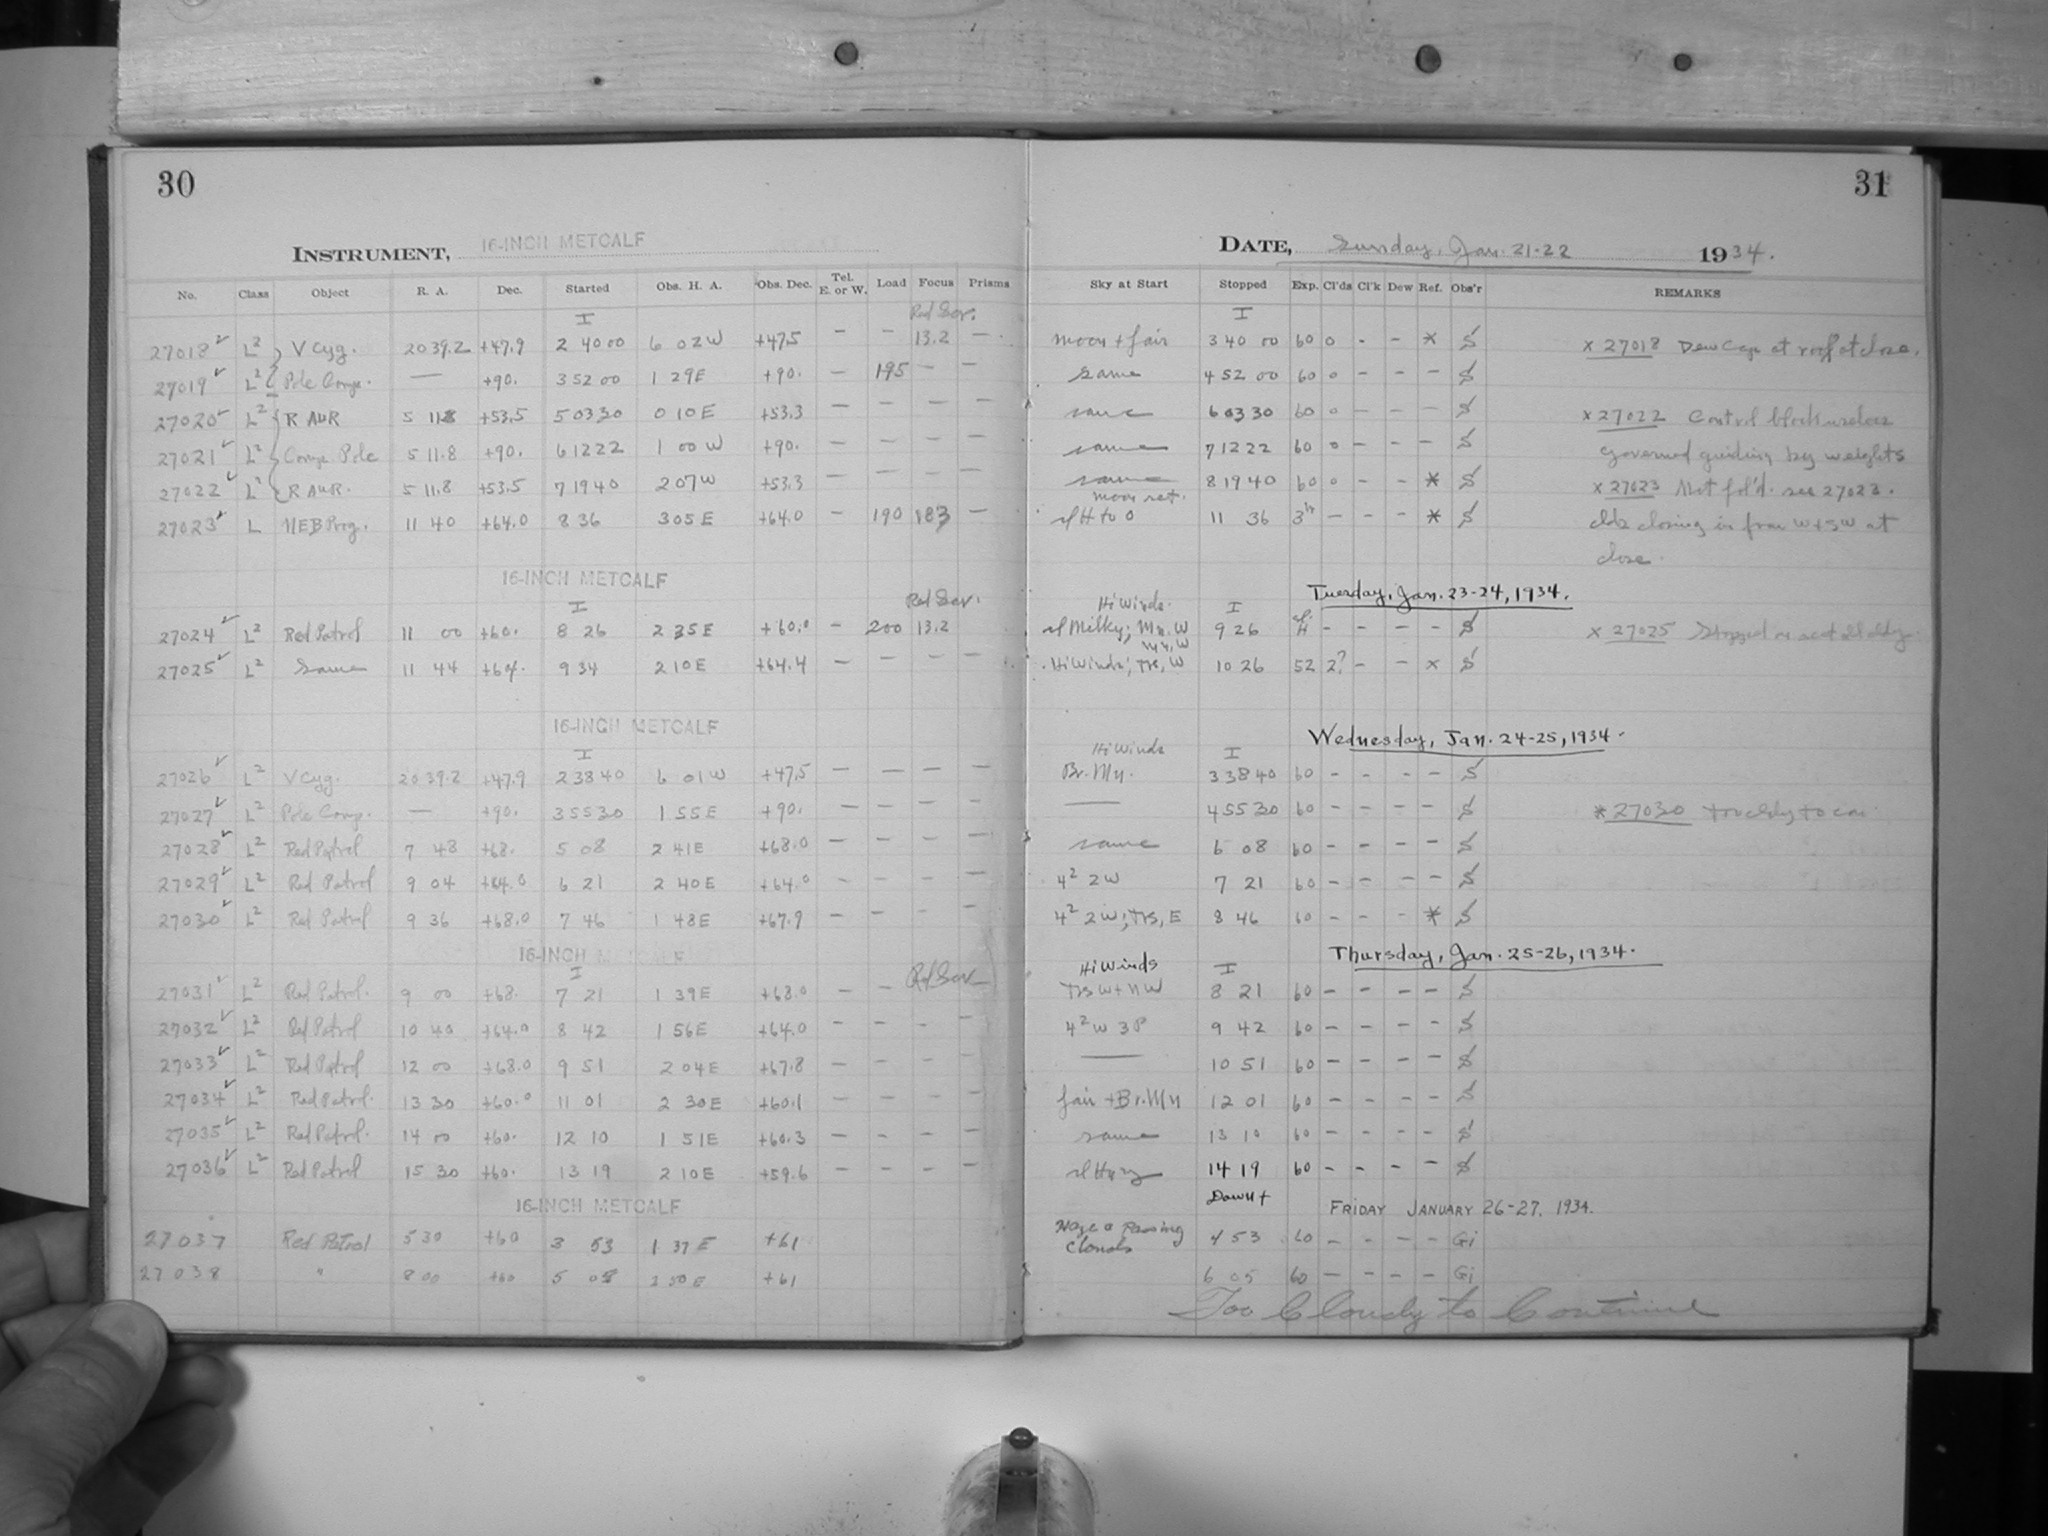 30
INSTRUMENT, 16-INCH METCALF
No. Class Object R. A. Dec. Started Obs. H. A. Obs. Dec. Tel. E. or W. Load Focus Prisms
I
27018 L² V Cyg. 20 39.2 +47.9 2 40 00 6 02 W +47.5 – – 13.2 –
27019 L² Pole Comp. — +90. 3 52 00 1 29 E +90. – 195 – –
27020 L² R AUR 5 11.8 +53.5 5 03 30 0 10 E +53.3 – – – –
27021 L² Comp. Pole 5 11.8 +90. 6 12 22 1 00 W +90. – – – –
27022 L² R AUR. 5 11.8 +53.5 7 19 40 2 07 W +53.3 – – – –
27023 L NEB Prog. 11 40 +64.0 8 36 3 05 E +64.0 – 190 183 –
16-INCH METCALF
I
27024 L² Red Patrol 11 00 +60. 8 26 2 35 E +60.0 – 200 13.2 –
27025 L² Same 11 44 +64. 9 34 2 10 E +64.4 – – – –
16-INCH METCALF
I
27026 L² V Cyg. 20 39.2 +47.9 2 38 40 6 01 W +47.5 – – – –
27027 L² Pole Comp. — +90. 3 55 30 1 55 E +90. – – – –
27028 L² Red Patrol 7 48 +68. 5 08 2 41 E +68.0 – – – –
27029 L² Red Patrol 9 04 +64.0 6 21 2 40 E +64.0 – – – –
27030 L² Red Patrol 9 36 +68.0 7 46 1 48 E +67.9 – – – –
16-INCH METCALF
I
27031 L² Red Patrol. 9 00 +68. 7 21 1 39 E +68.0 – –
27032 L² Red Patrol 10 40 +64.0 8 42 1 56 E +64.0 – – – –
27033 L² Red Patrol 12 00 +68.0 9 51 2 04 E +67.8 – – – –
27034 L² Red Patrol. 13 30 +60.0 11 01 2 30 E +60.1 – – – –
27035 L² Red Patrol. 14 00 +60. 12 10 1 51 E +60.3 – – – –
27036 L² Red Patrol 15 30 +60. 13 19 2 10 E +59.6 – – – –
16-INCH METCALF
27037 Red Patrol 5 30 +60 3 53 1 37 E +61
27038 " 8 00 +60 5 05 +61
31
DATE, Sunday, Jan. 21-22 1934.
Sky at Start Stopped Exp. Cl'ds Cl'k Dew Ref. Obs'r REMARKS
I
moon + fair 3 40 00 60 0 - - * S x 27018 Dew Cap at roof at close.
same 4 52 00 60 0 - - - S
same 6 03 30 60 0 - - - S x 27022 Control block useless
same 7 12 22 60 0 - - - S governed guiding by weights
same 8 19 40 60 0 - - * S x 27023 Not fol'd. see 27023.
moon set.
sl H to 0 11 36 3h - - - * S clds closing in from W + SW at
close.
Tuesday, Jan. 23-24, 1934.
Hi Winds. I
sl Milky; Mn. W 9 26 - - - - S x 27025 Stopped
Hi Winds; Trs, W 10 26 52 2? - - x S
Wednesday, Jan. 24-25, 1934.
Hi Winds I
Br. Mn. 3 38 40 60 - - - - S
— 4 55 30 60 - - - - S * 27030
same 6 08 60 - - - - S
4² 2W 7 21 60 - - - - S
4² 2W; Trs, E 8 46 60 - - - * S
Thursday, Jan. 25-26, 1934.
Hi Winds I
Trs W + NW 8 21 60 - - - - S
4² W 3P 9 42 60 - - - - S
— 10 51 60 - - - - S
fair + Br. Mn 12 01 60 - - - - S
same 13 10 60 - - - - S
sl Hazy 14 19 60 - - - - S
Dawn +
FRIDAY JANUARY 26-27. 1934.
Haze & Passing
Clouds 4 53 60 - - - - Gi
6 05 60 - - - - Gi
Too Cloudy to Continue